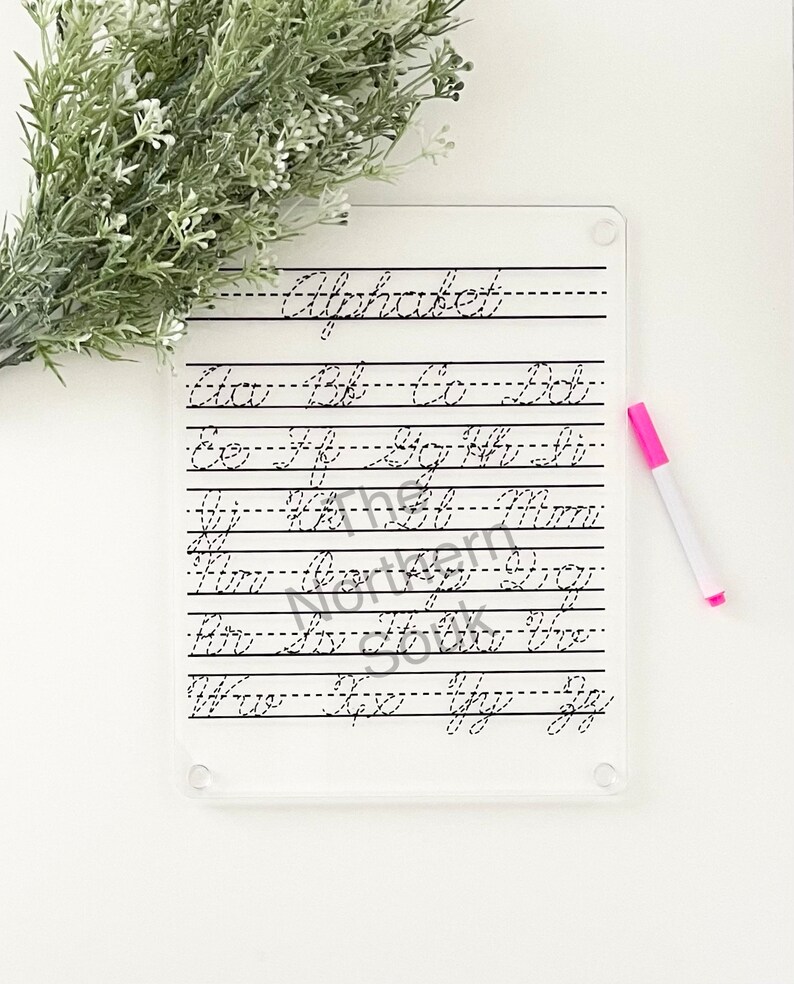 Alphabet
Aa Bb Cc Dd
Ee Ff Gg Hh Ii
Jj Kk Ll Mm
Nn Oo Pp Qq
Rr Ss Tt Uu Vv
Ww Xx Yy Zz
The
Northern
Souk